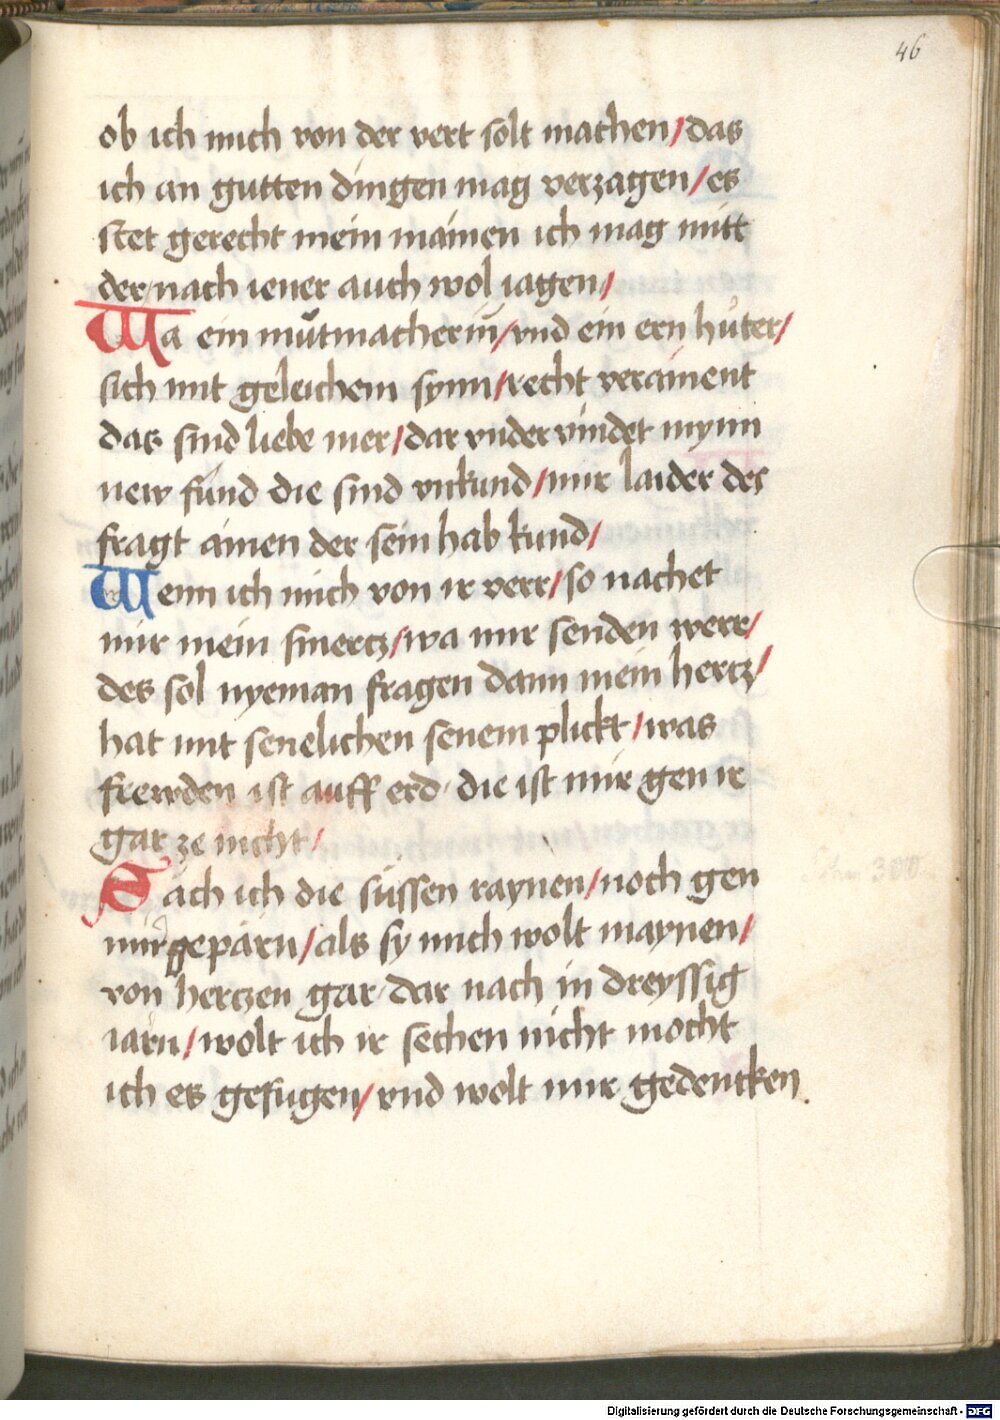 46
ob ich mich von der vert solt machen / das
ich an gutten dingen mag verzagen / es
stet gerecht mein mainen ich mag mitt
der nach iener auch wol iagen /
Wa ein mŭtmacherin̄ / vnd ein ern hŭter /
sich mit geleichem synn / recht verainent
das sind liebe mer / dar vnder vindet mynn
new fúnd die sind vnkund / mir laider des
fragt ainen der sein hab kund /
Wenn ich mich von ir verr / so nachet
mir mein smertz / wa mir senden werr /
des sol nyeman fragen dann mein hertz /
hat mit senelichen senem plickt / was
frewden ist auff erd die ist mir gen ir
gar ze nicht /
Säch ich die süssen raynen / noch gen
mir gepärn / als sy mich wolt maynen /
von hertzen gar dar nach in dreyssig
iarn / wolt ich ir sechen nicht mocht
ich es gefugen / vnd wolt mir gedencken
Digitalisierung gefördert durch die Deutsche Forschungsgemeinschaft - DFG